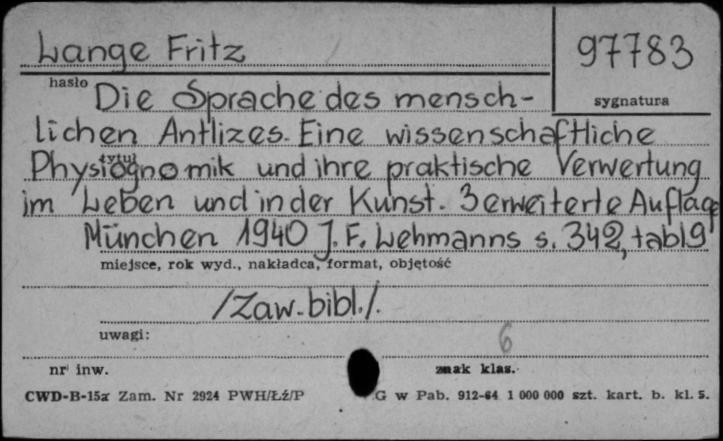 Lange Fritz
97783
hasło
sygnatura
Die Sprache des mensch-
lichen Antlizes. Eine wissenschaftliche
tytuł
Physiognomik und ihre praktische Verwertung
im Leben und in der Kunst. 3 erweiterte Auflage
München 1940 J. F. Lehmanns s. 342, tabl 9
miejsce, rok wyd., nakładca, format, objętość
/Zaw. bibl./.
uwagi:
6
nr inw.
znak klas.
CWD-B-15a Zam. Nr 2924 PWH/Łź/P
G w Pab. 912-64 1 000 000 szt. kart. b. kl. 5.